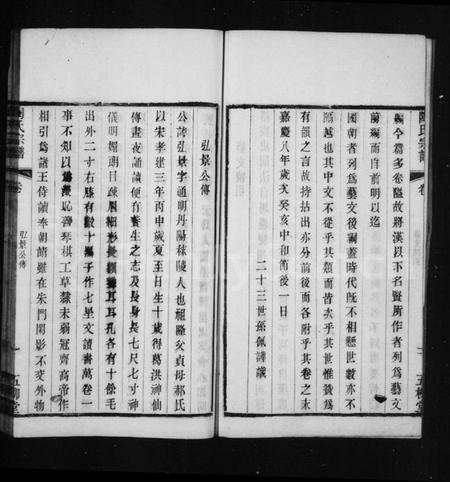 嗣今篇多卷隘故將漢以下名賢所作者列爲藝文
前編而自前明以迄
國朝者列爲藝文後編蓋時代既不相懸世數亦不
隔越也其中文不從乎其類而皆次乎其世惟贊爲
有韻之言故持拈出亦分前後而各附乎其卷之末
嘉慶八年歲次癸亥中和節後一日
二十三世孫佩謹識
弘景公傳
公諱弘景字通明丹陽秣陵人也祖隆父貞母郝氏
以宋孝建三年丙申歲夏至日生十歲得葛洪神仙
傳晝夜誦讀便有養生之志及長身長七尺七寸神
儀明媚朗目疎眉細形長額聳耳耳孔各有十餘毛
出外二寸右膝有數十黑子作七星文讀書萬卷一
事不知以爲深恥善琴棋工草隸未弱冠齊高帝作
相引爲諸王侍讀奉朝請雖在朱門閉影不交外物
陶氏宗譜
卷
弘景公傳
一
五柳堂